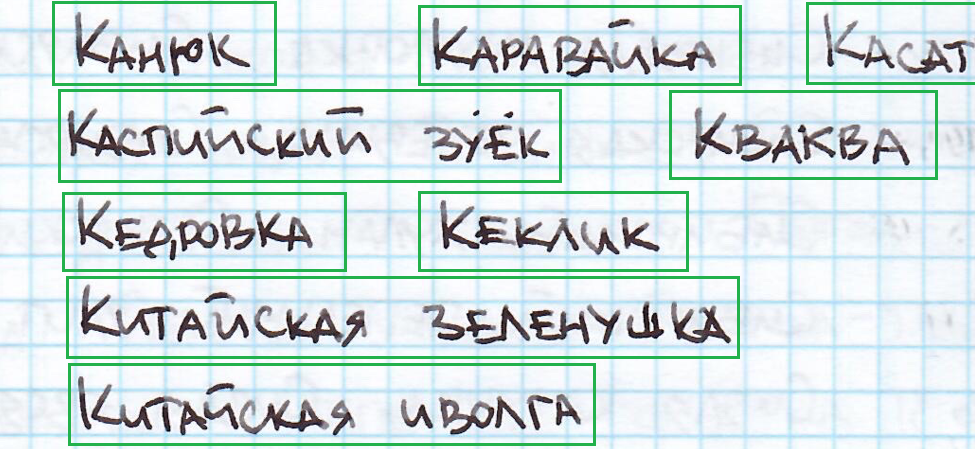 Канюк Каравайка Касат
Каспийский зуёк Кваква
Кедровка Кеклик
Китайская зеленушка
Китайская иволга